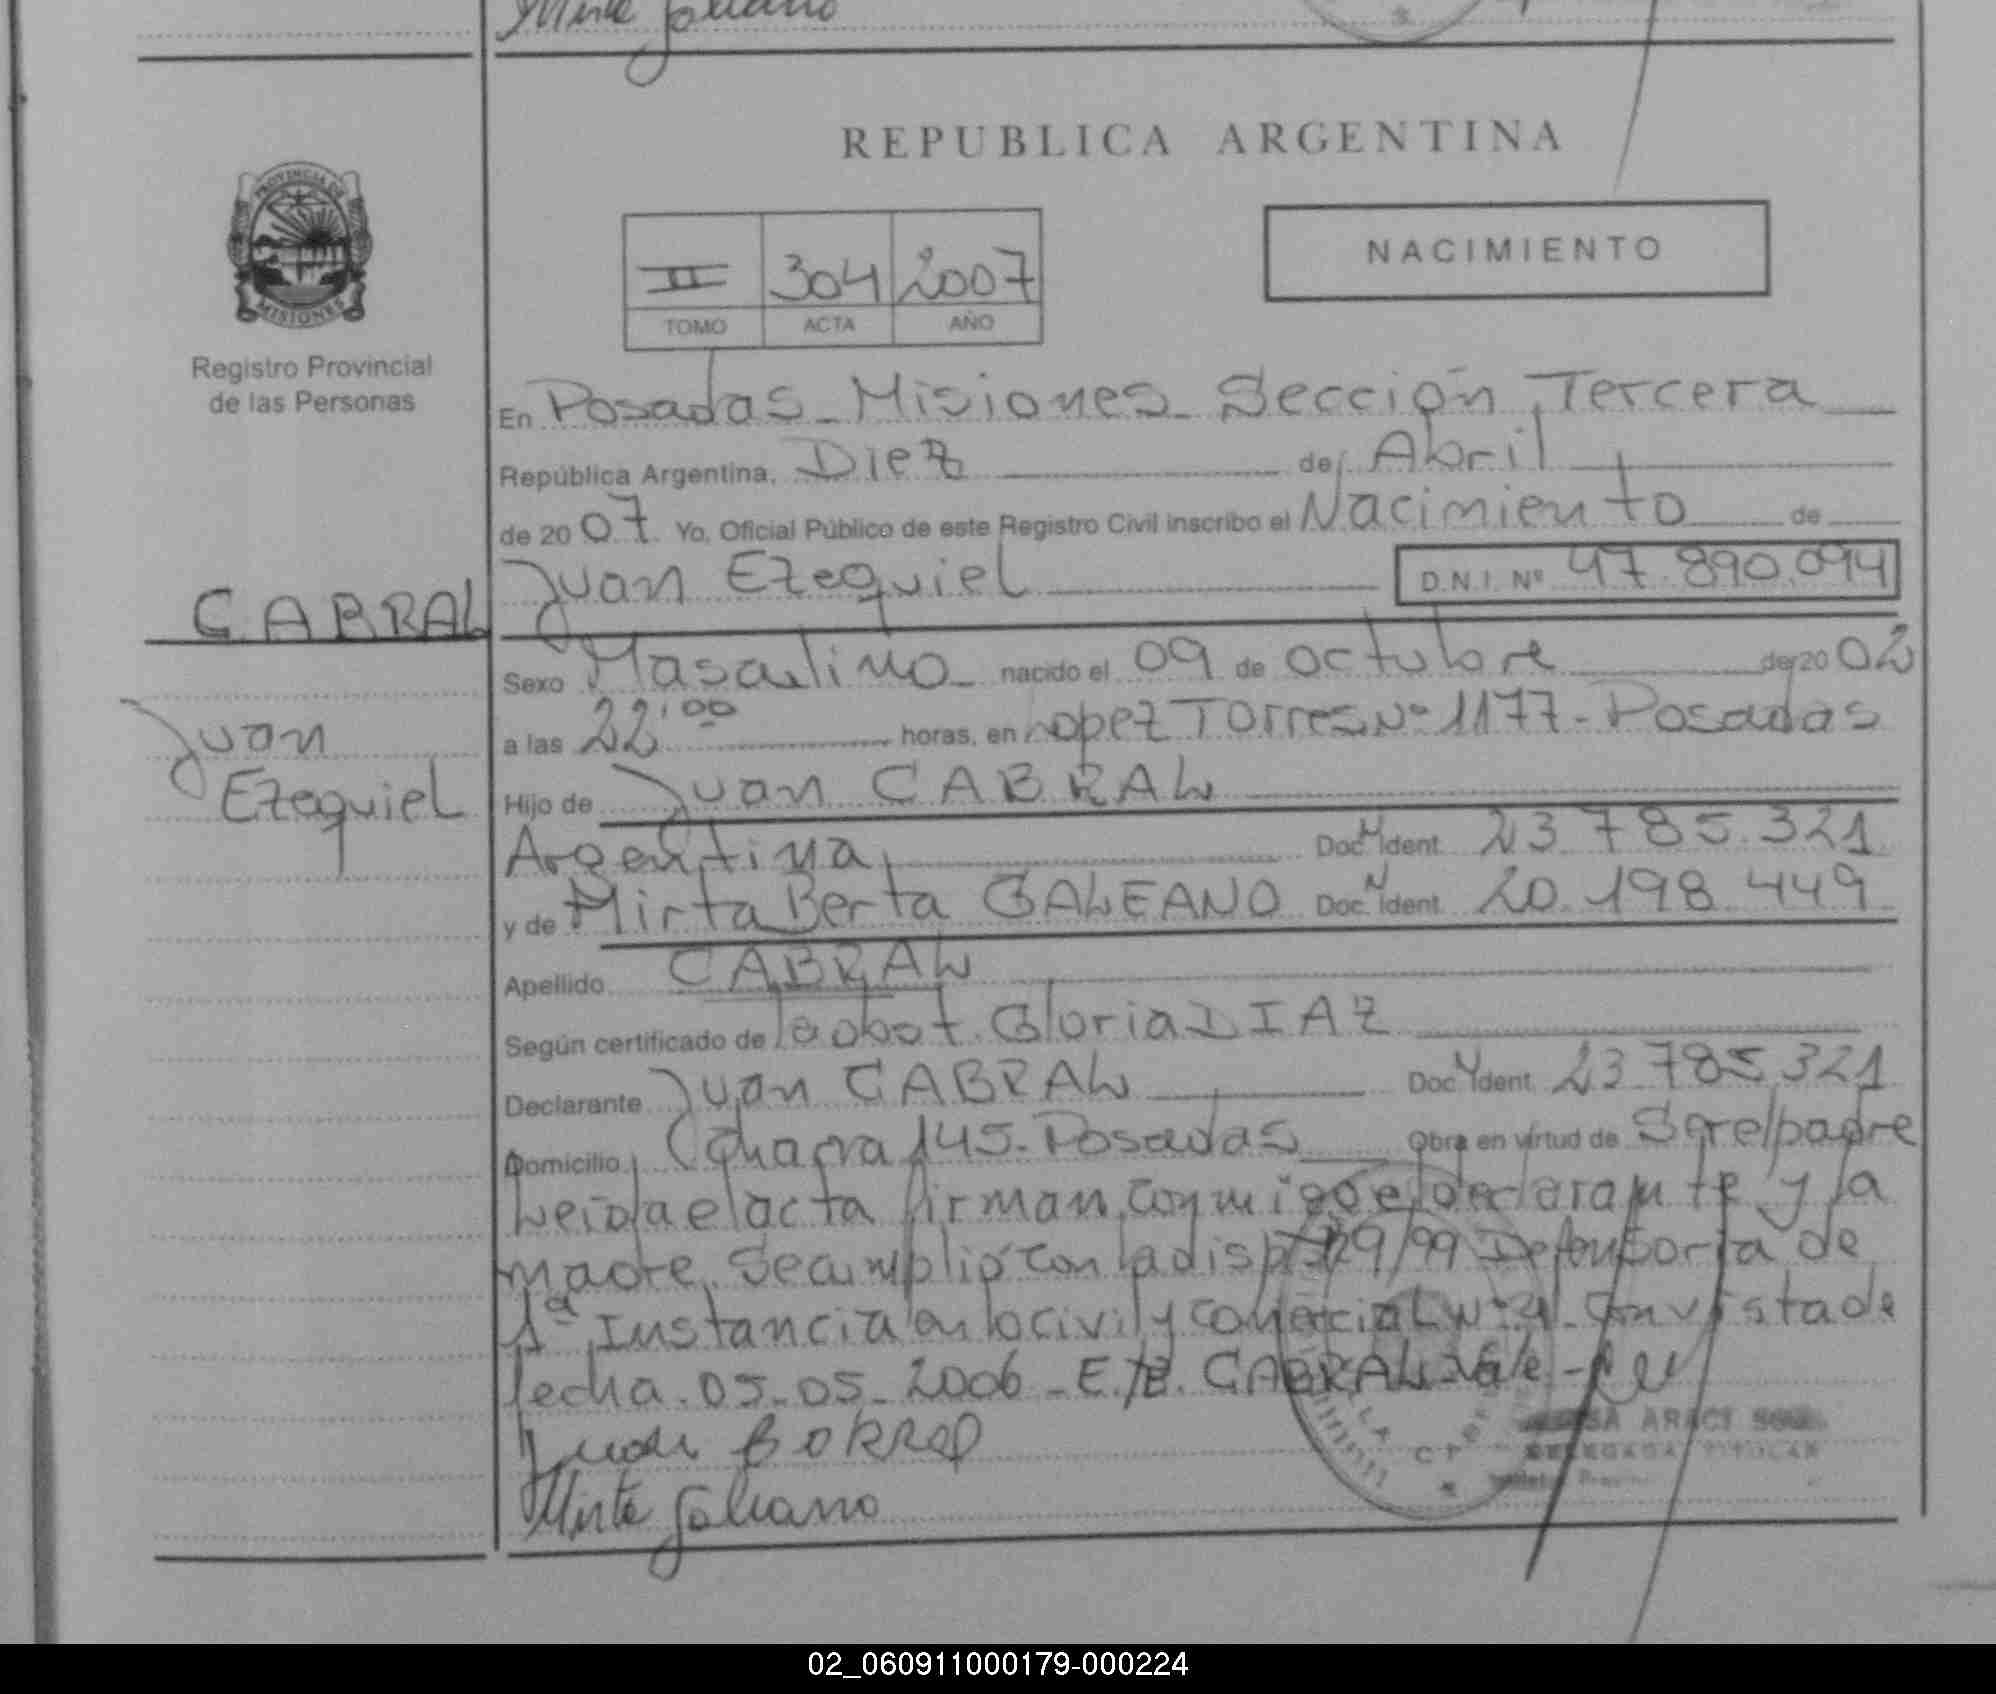 Mirta Galiano
REPUBLICA ARGENTINA
PROVINCIA DE
MISIONES
Registro Provincial
de las Personas
NACIMIENTO
II 304 2007
TOMO ACTA AÑO
En Posadas - Misiones - Sección Tercera
República Argentina, Diez de Abril
de 2007 Yo, Oficial Público de este Registro Civil inscribo el Nacimiento de
Juan Ezequiel D.N.I. Nº 47.890.094
CABRAL
Juan
Ezequiel
Sexo Masculino nacido el 09 de octubre de 2002
a las 22:00 horas, en Lopez Torres Nº 1177 - Posadas
Hijo de Juan CABRAL
Argentina Doc. N Ident. 23.785.321
y de Mirta Berta GALEANO Doc. N Ident. 20.198.449
Apellido CABRAL
Según certificado de la obst. Gloria DIAZ
Declarante Juan CABRAL Doc. N Ident. 23.785.321
Domicilio Chacra 145 - Posadas Obra en virtud de Ser el padre
Leída el acta firman conmigo el declarante y la
madre. Se cumplió con la disp. 129/99 Defensoría de
1ª Instancia en lo civil y comercial Nº 4 con vista de
fecha 05-05-2006 - E/B. CABRAL Vale -
Juan
Mirta Galiano
ARACI
DELEGADA TITULAR
02_060911000179-000224